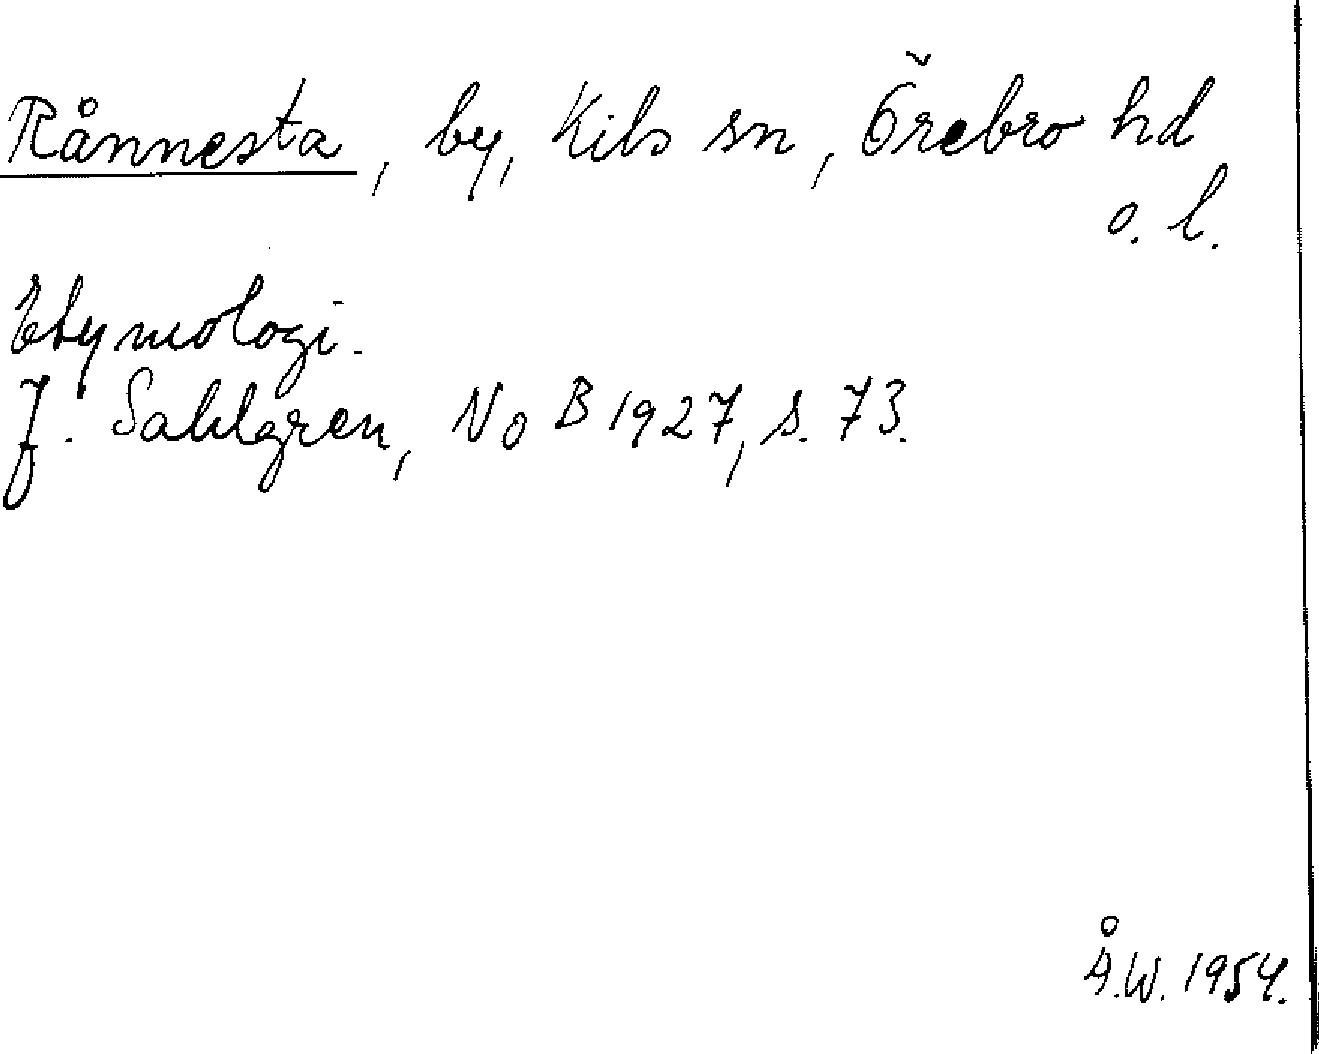 Rånnesta, by, Kils sn, Örebro hd
o. l.
Etymologi.
J. Sahlgren, NoB 1927, s. 73.
Å.W. 1954.